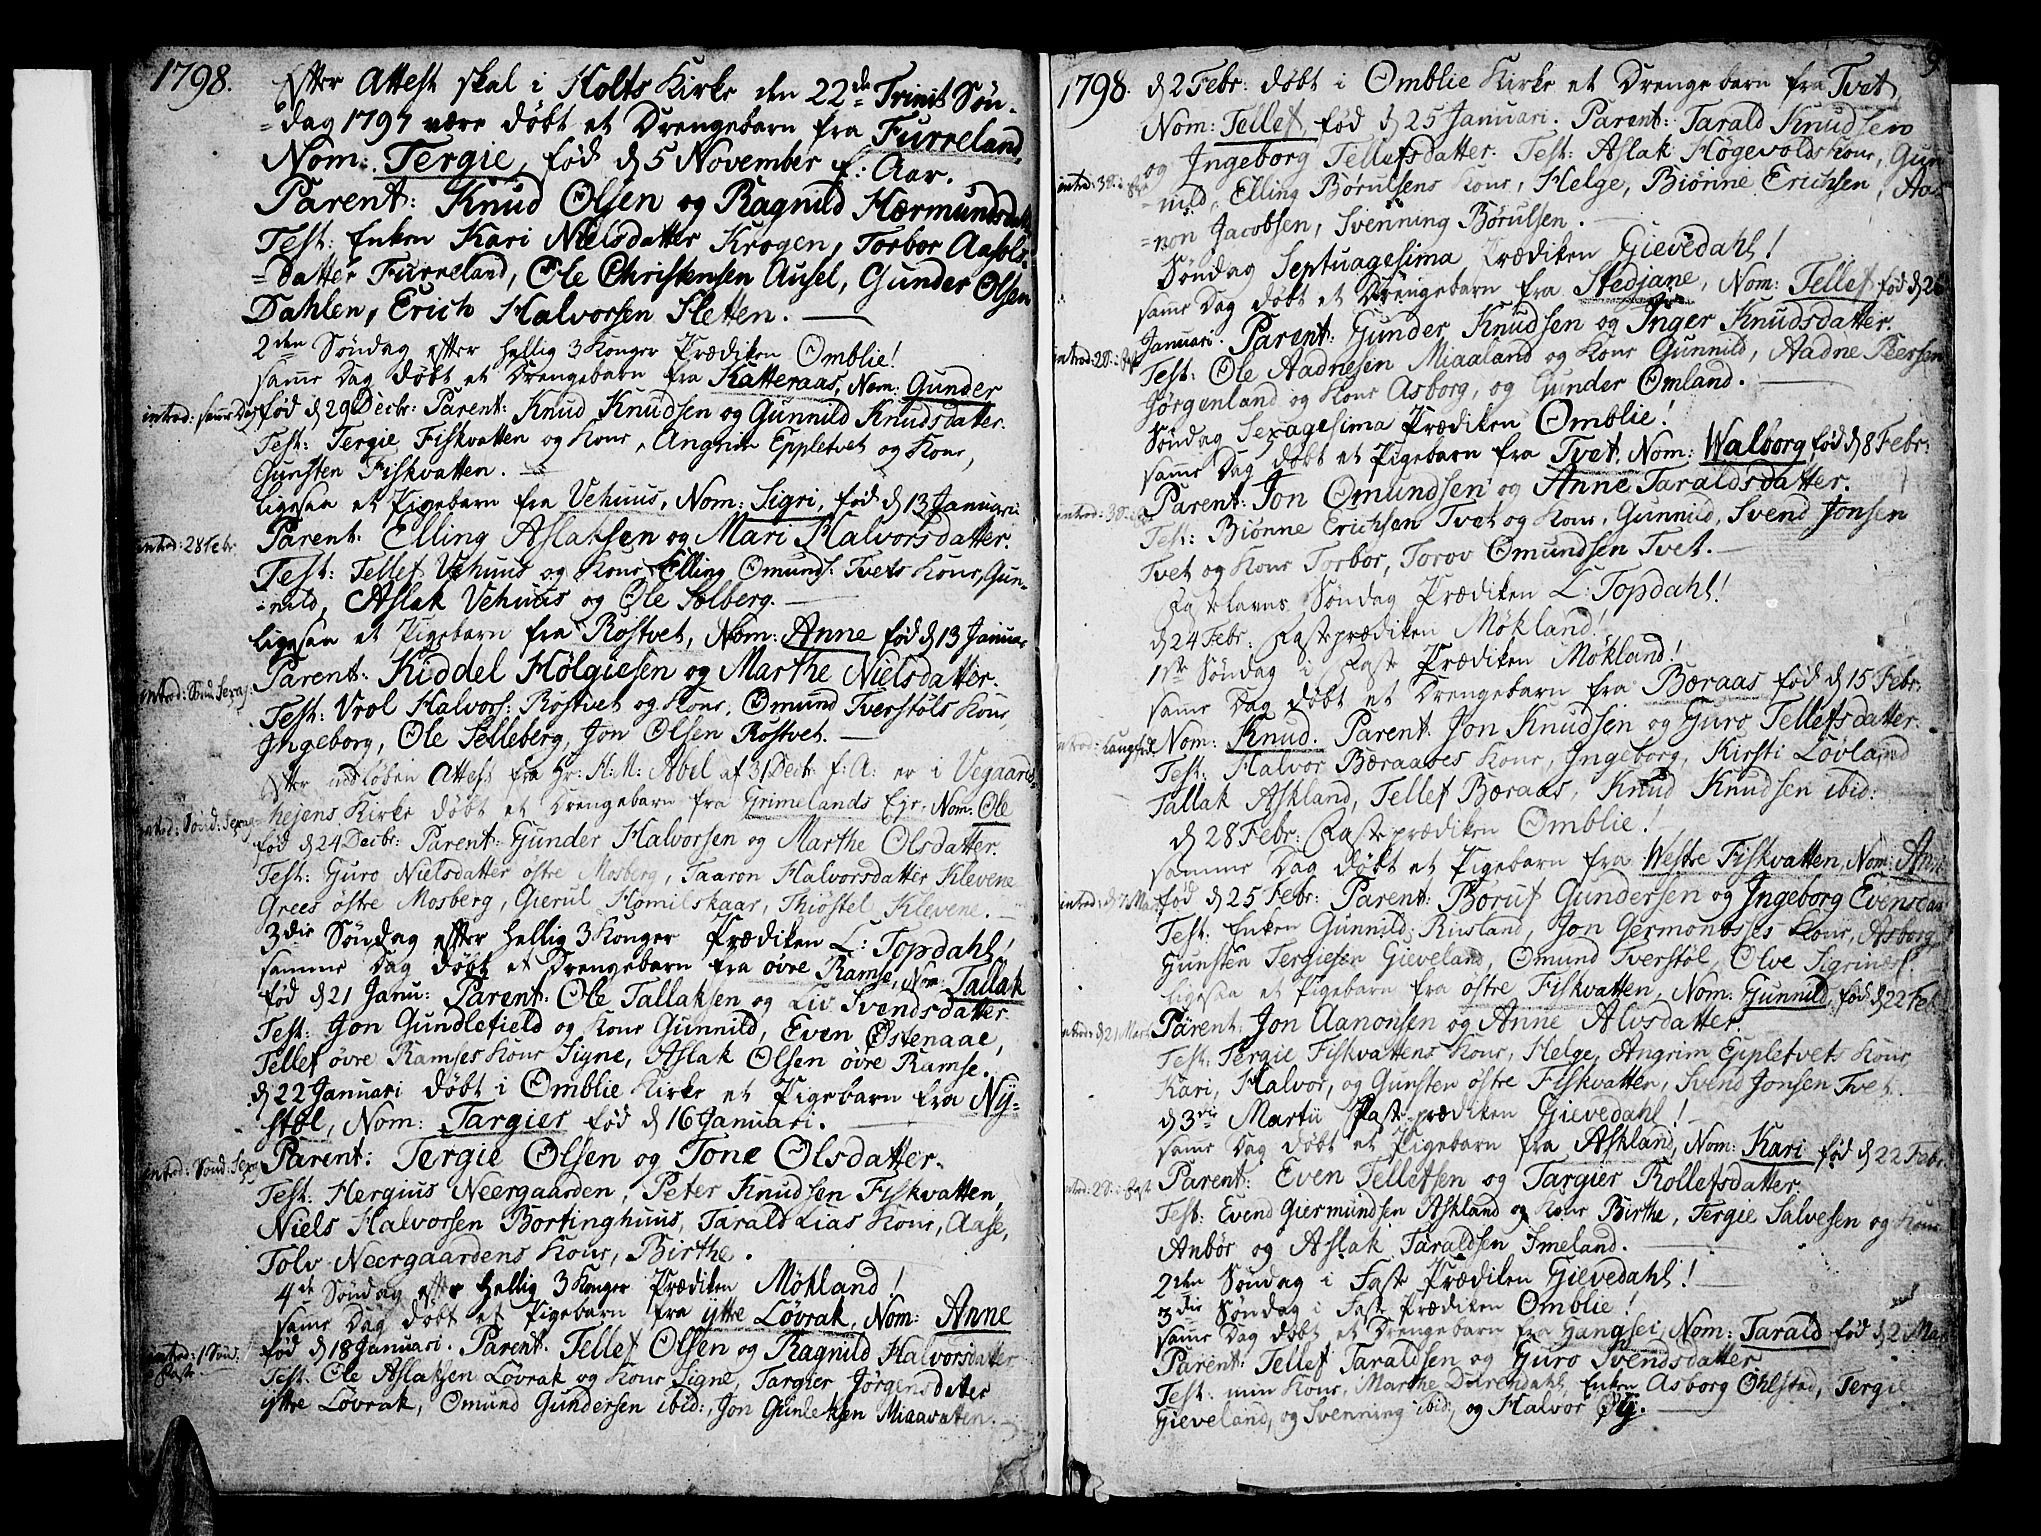 1798.
Efter Attest skal i Holts Kirke den 22de Trinit. Søn-
=dag 1797 være døbt et Drengebarn fra Furreland,
Nom: Tergie, fød d 5 November f: Aar.
Parent: Knud Olsen og Ragnild Hærmundsdatt.
Test: Enken Kari Nielsdatter Krogen, Torbor Aasols-
=datter Furreland, Ole Christensen Ausel, Gunder Olsen
Dahlen, Erich Halvorsen Sletten.
2den Søndag efter hellig 3 Konger Prædiken Omblie!
samme Dag døbt et Drengebarn fra Katteraas, Nom: Gunder
introd: samme Dag
fød d 29 Decbr: Parent: Knud Knudsen og Gunnild Knudsdatter.
Test: Tergie Fiskvatten og Kone, Angrim Eppletvet og Kone,
Gunsten Fiskvatten.
ligesaa et Pigebarn fra Vehuus, Nom: Sigri, fød d 13 Januari
introd: 28 Febr.
Parent: Elling Aslaksen og Mari Halvorsdatter.
Test: Tellef Vehuus og Kone, Elling Omunds: Tvets Kone, Gun-
=nild, Aslak Vehuus og Ole Solberg.
ligesaa et Pigebarn fra Rostvet, Nom: Anne fød d 13 Januar
Parent: Kiddel Hølgiesen og Marthe Nielsdatter.
introd: Sønd: Sexag:
Test: Vrol Halvors: Rostvet og Kone, Omund Tverstøls Kone,
Ingeborg, Ole Selleberg, Jon Olsen Rostvet.
Efter indløben Attest fra Hr: H: M: Abel af 31 Decbr f: A: er i Vegaards-
hejens Kirke døbt et Drengebarn fra Grimelands Ejr. Nom: Ole
introd: Sønd: Sexag:
fød d 24 Decbr: Parent: Gunder Halvorsen og Marthe Olsdatter.
Test: Guro Nielsdatter østre Mosberg, Taaron Halvorsdatter Klevene
Grees østre Mosberg, Gierul Homilskaar, Thiøstel Klevene.
3die Søndag efter hellig 3 Konger Prædiken L: Topdahl!
samme Dag døbt et Drengebarn fra øvre Ramse, Nom: Tallak
fød d 21 Janu: Parent: Ole Tallaksen og Liv Svendsdatter.
Test: Jon Gundlefield og Kone Gunnild, Even Østenaae,
Tellef øvre Ramses Kone Signe, Aslak Olsen øvre Ramse.
d 22 Januari døbt i Omblie Kirke et Pigebarn fra Ny-
støl, Nom: Targier fød d 16 Januari.
introd: Sønd: Sexag:
Parent: Tergie Olsen og Tone Olsdatter.
Test: Hergius Neergaarden, Peter Knudsen Fiskvatten
Niels Halvorsen Bortinghuus, Tarald Lias Kone, Aase,
Tolv Neergaardens Kone, Birthe.
4de Søndag efter hellig 3 Konger Prædiken Møkland!
samme Dag døbt et Pigebarn fra yttre Løvrak, Nom: Anne
introd: 1 Sønd. i Fast.
fød d 18 Januari. Parent: Tellef Olsen og Ragnild Halvorsdatter
Test: Ole Aslaksen Løvrak og Kone Signe, Targier Jørgensdatter
yttre Løvrak, Omund Gundersen ibid:, Jon Gunleksen Miaavatten.
9
1798.
d 2 Febr: døbt i Omblie Kirke et Drengebarn fra Tvet
Nom: Tellef, fød d 25 Januari. Parent: Tarald Knudsen
introd: 3 S: i Fast
og Ingeborg Tellefsdatter. Test: Aslak Høgevolds Kone, Gun-
=nild, Elling Børulsens Kone, Helge, Biønne Erichsen, Aa-
=non Jacobsen, Svenning Børulsen.
Søndag Septuagesima Prædiken Gievedahl!
samme Dag døbt et Drengebarn fra Stedjane, Nom: Tellef fød d 26
Januari. Parent: Gunder Knudsen og Inger Knudsdatter.
introd: 2 S: i Fast
Test: Ole Aadnesen Miaaland og Kone Gunnild, Aadne Peersen
Jørgenland og Kone Asborg, og Gunder Omland.
Søndag Sexagesima Prædiken Omblie!
samme Dag døbt et Pigebarn fra Tvet, Nom: Walborg fød d 8 Febr:
introd: 3 S: i Fast
Parent: Jon Omundsen og Anne Taraldsdatter.
Test: Biønne Erichsen Tvet og Kone, Gunnild, Svend Jonsen
Tvet og Kone Torbor, Torov Omundsen Tvet.
Fastelavns Søndag Prædiken L: Topdahl!
d 24 Febr: Fasteprædiken Møkland!
1ste Søndag i Fast Prædiken Møkland!
samme Dag døbt et Drengebarn fra Bæraas fød d 15 Febr:
introd: Langfred.
Nom: Knud. Parent: Jon Knudsen og Guro Tellefsdatter.
Test: Halvor Bæraases Kone, Ingeborg, Kirsti Løvland
Tallak Askland, Tellef Bæraas, Knud Knudsen ibid:
d 28 Febr: Fasteprædiken Omblie!
samme Dag døbt et Pigebarn fra Westre Fiskvatten, Nom: Anne
introd: d 7 Mart.
fød d 25 Febr: Parent: Boruf Gundersen og Ingeborg Evensdat.
Test: Enken Gunnild Rusland, Jon Germonosses Kone, Asborg
Gunsten Tergiesen Gieveland, Omund Tverstøl, Olve Sigrinæs.
ligesaa et Pigebarn fra østre Fiskvatten, Nom: Gunnild, fød d 22 Feb.
introd: d 21 Mart.
Parent: Jon Aanonsen og Anne Alvsdatter.
Test: Tergie Fiskvattens Kone, Helge, Angrim Eppletvets Kone,
Kari, Halvor, og Gunsten østre Fiskvatten, Svend Jonsen Tvet.
d 3die Martii Fasteprædiken Gievedahl!
samme Dag døbt et Pigebarn fra Askland, Nom: Kari fød d 22 Febr:
introd: 2 S: i Fast
Parent: Even Tellefsen og Targier Rollefsdatter
Test: Evend Giermundsen Askland og Kone Birthe, Tergie Salvesen og Kone
Anbør og Aslak Taraldsen Imeland.
2den Søndag i Fast Prædiken Gievedahl!
3die Søndag i Fast Prædiken Omblie!
samme Dag døbt et Drengebarn fra Gangsei, Nom: Tarald fød d 2 Mar
Parent: Tellef Taraldsen og Guro Svendsdatter
Test: min Kone, Marthe Durendahl, Enken Asborg Ohlstad, Tergie
Gieveland, og Svenning ibid:, og Halvor